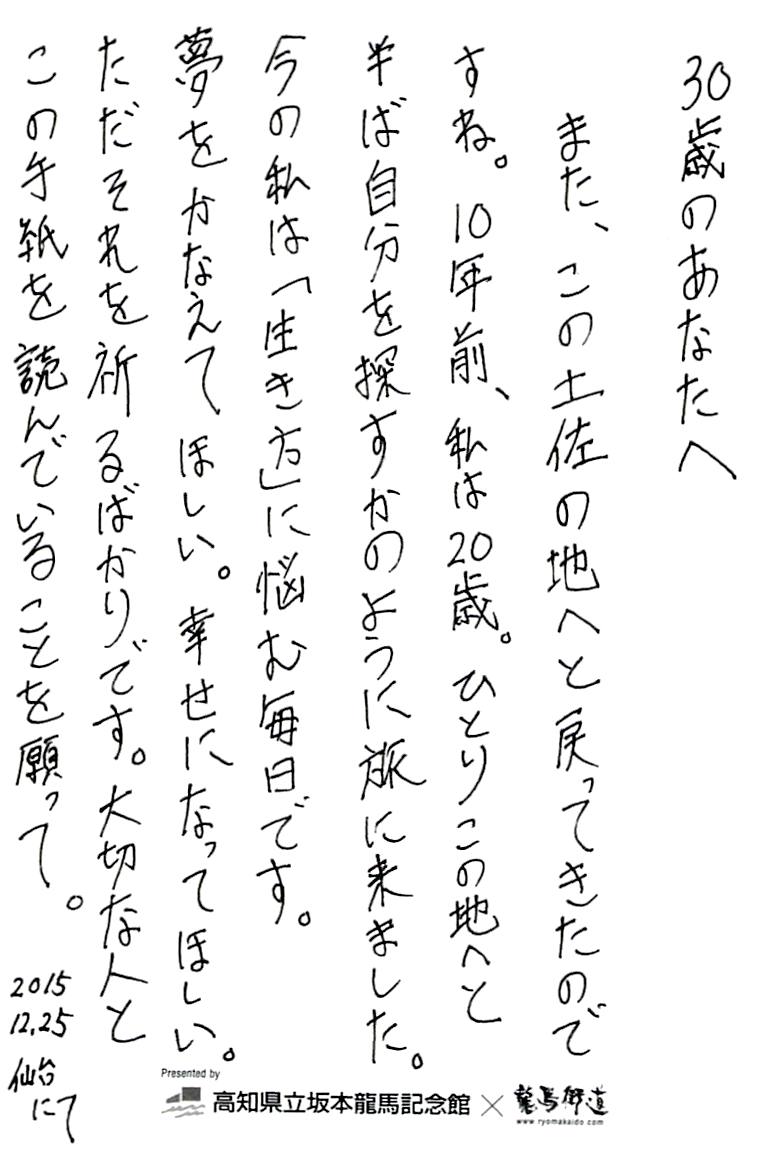 30歳のあなたへ
また、この土佐の地へと戻ってきたので
すね。10年前、私は20歳。ひとりこの地へと
半ば自分を探すかのように旅に来ました。
今の私は「生き方」に悩む毎日です。
夢をかなえてほしい。幸せになってほしい。
ただそれを祈るばかりです。大切な人と
この手紙を読んでいることを願って。
2015
12.25
仙台
にて
Presented by
高知県立坂本龍馬記念館 × 龍馬街道
www.ryomakaido.com